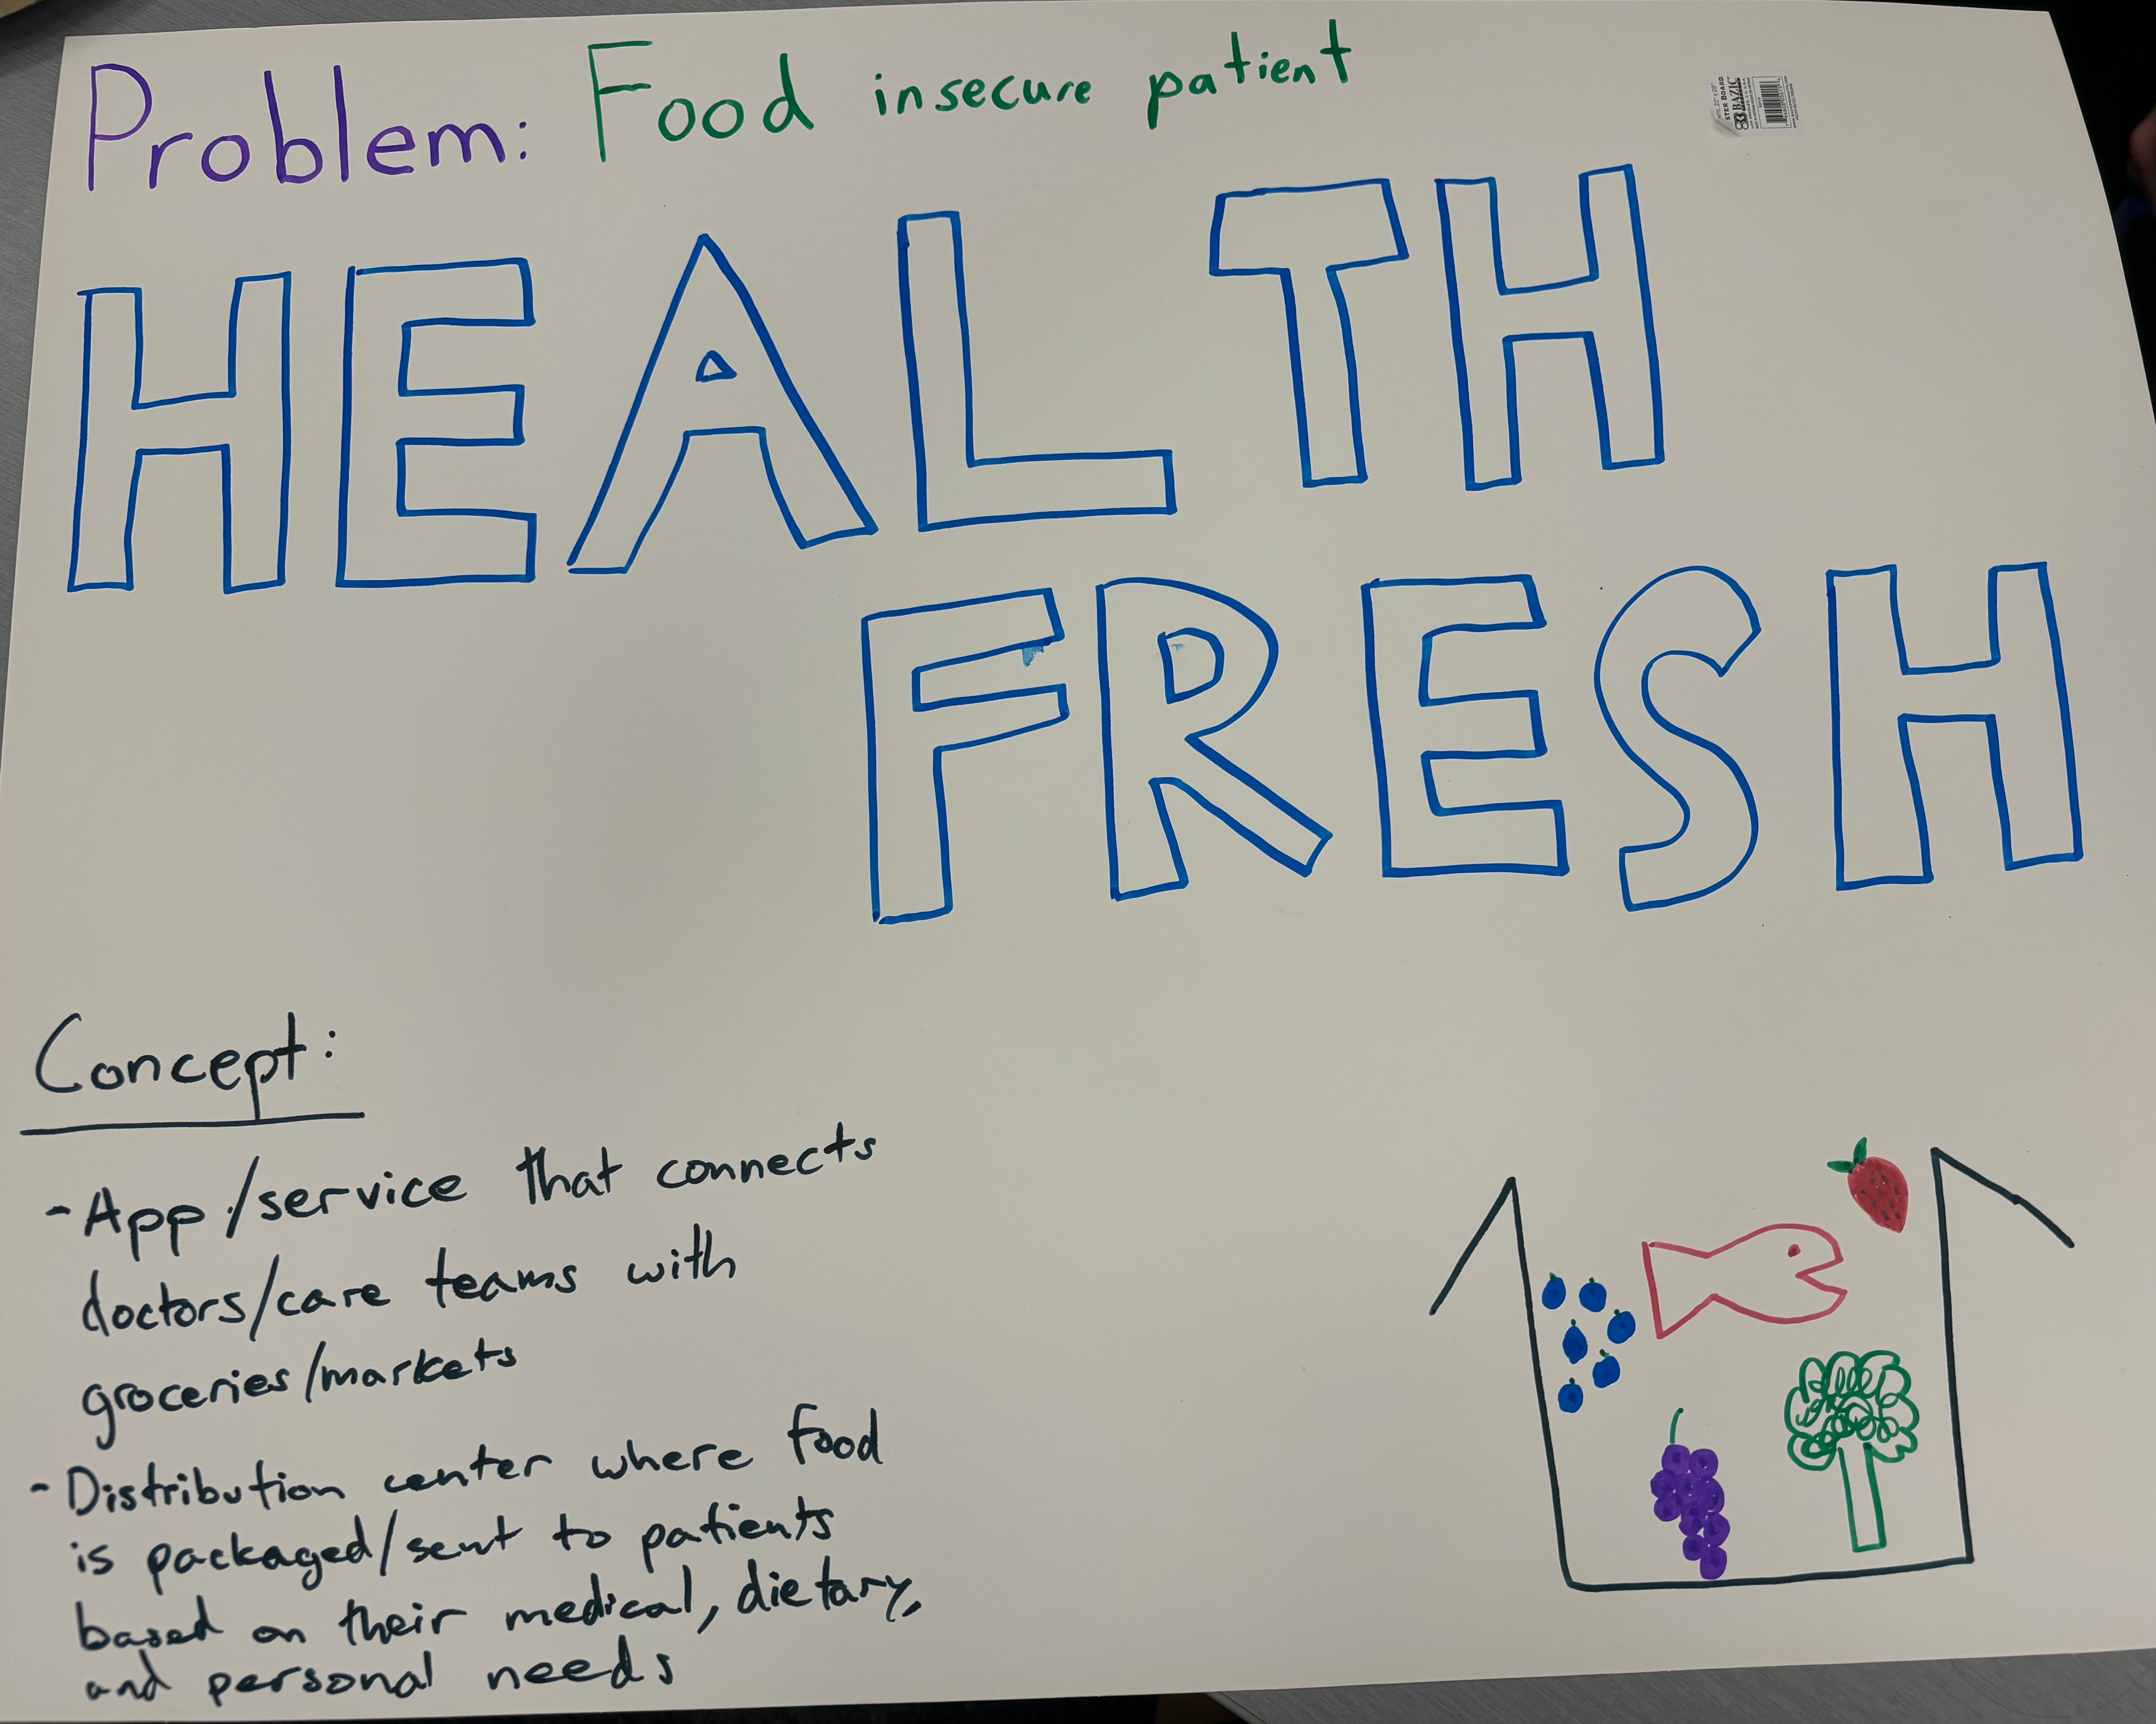 Problem: Food insecure patient
HEALTH
FRESH
Concept:
- App/service that connects
doctors/care teams with
groceries/markets
- Distribution center where food
is packaged/sent to patients
based on their medical, dietary,
and personal needs
BAZIC